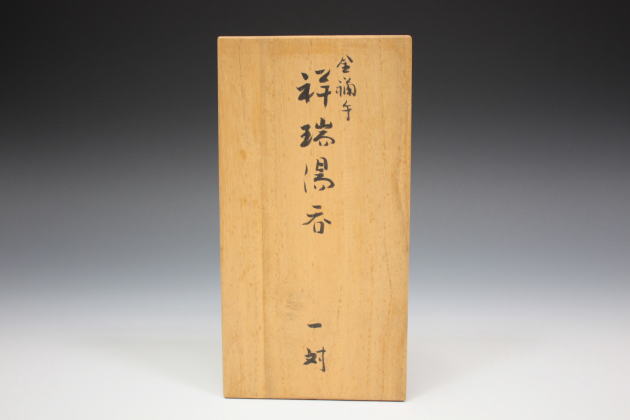 金襴手
祥瑞湯呑
一対